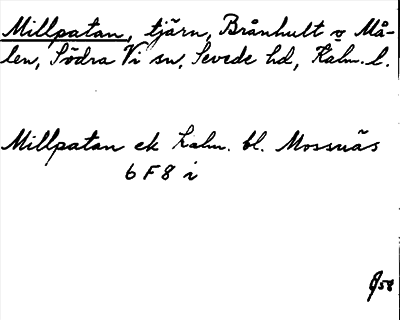 Millpatan, tjärn, Brånhult o Må-
len, Södra Vi sn, Sevede hd, Kalm. l.
Millpatan ek Kalm. bl. Mossnäs
6 F 8 i
58